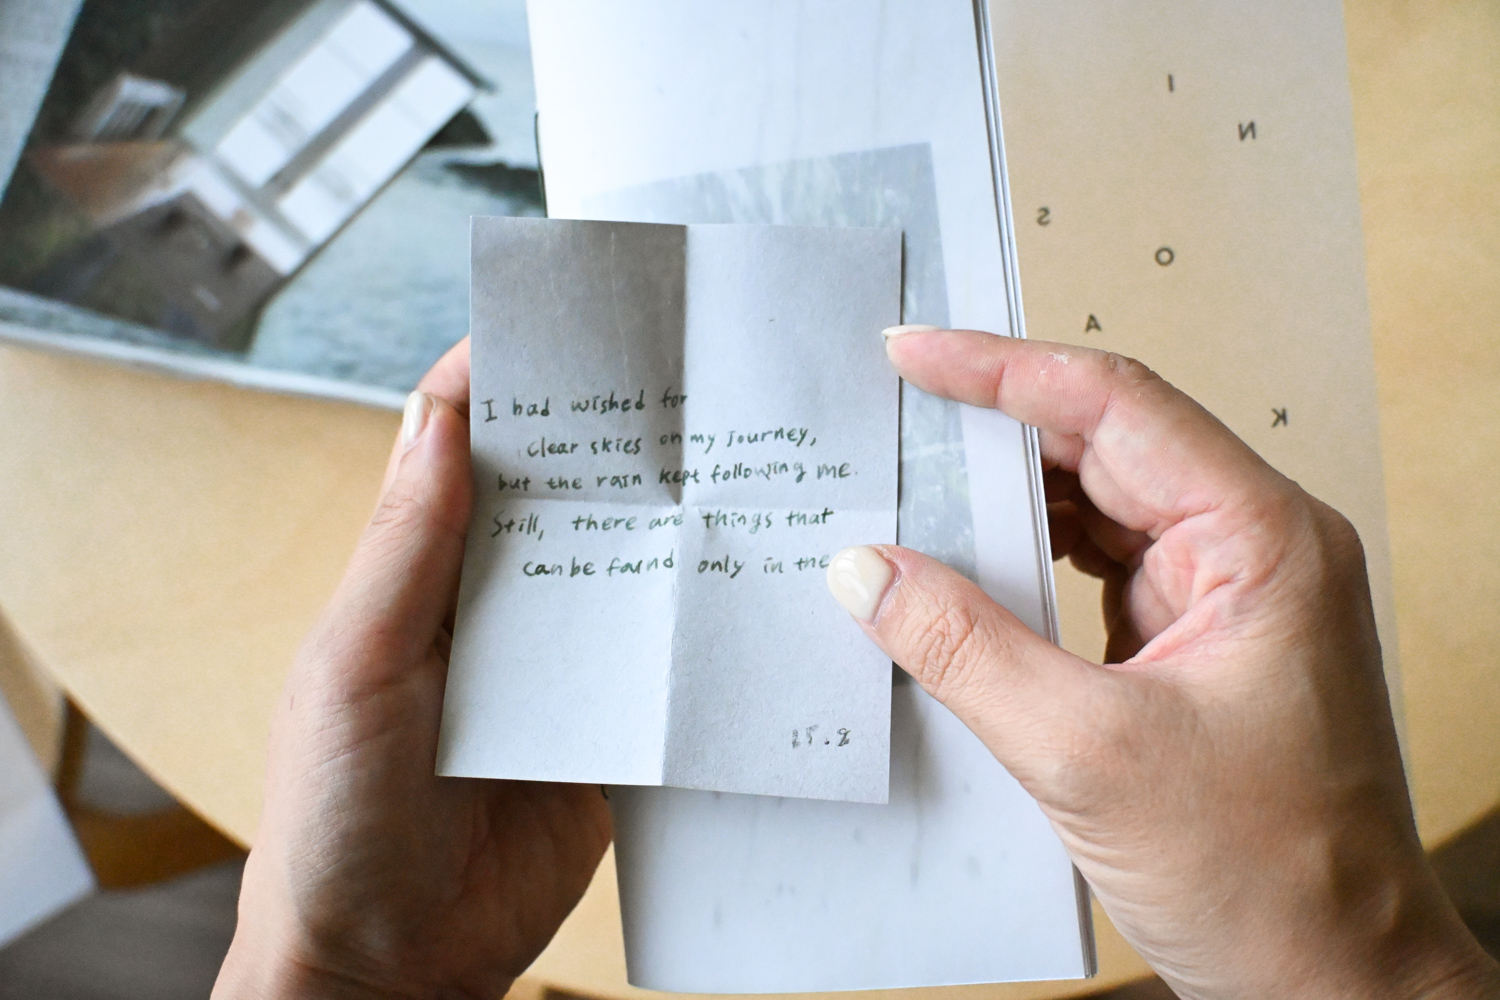 I had wished for
clear skies on my journey,
but the rain kept following me.
Still, there are things that
can be found only in the
I
N
S
O
A
K